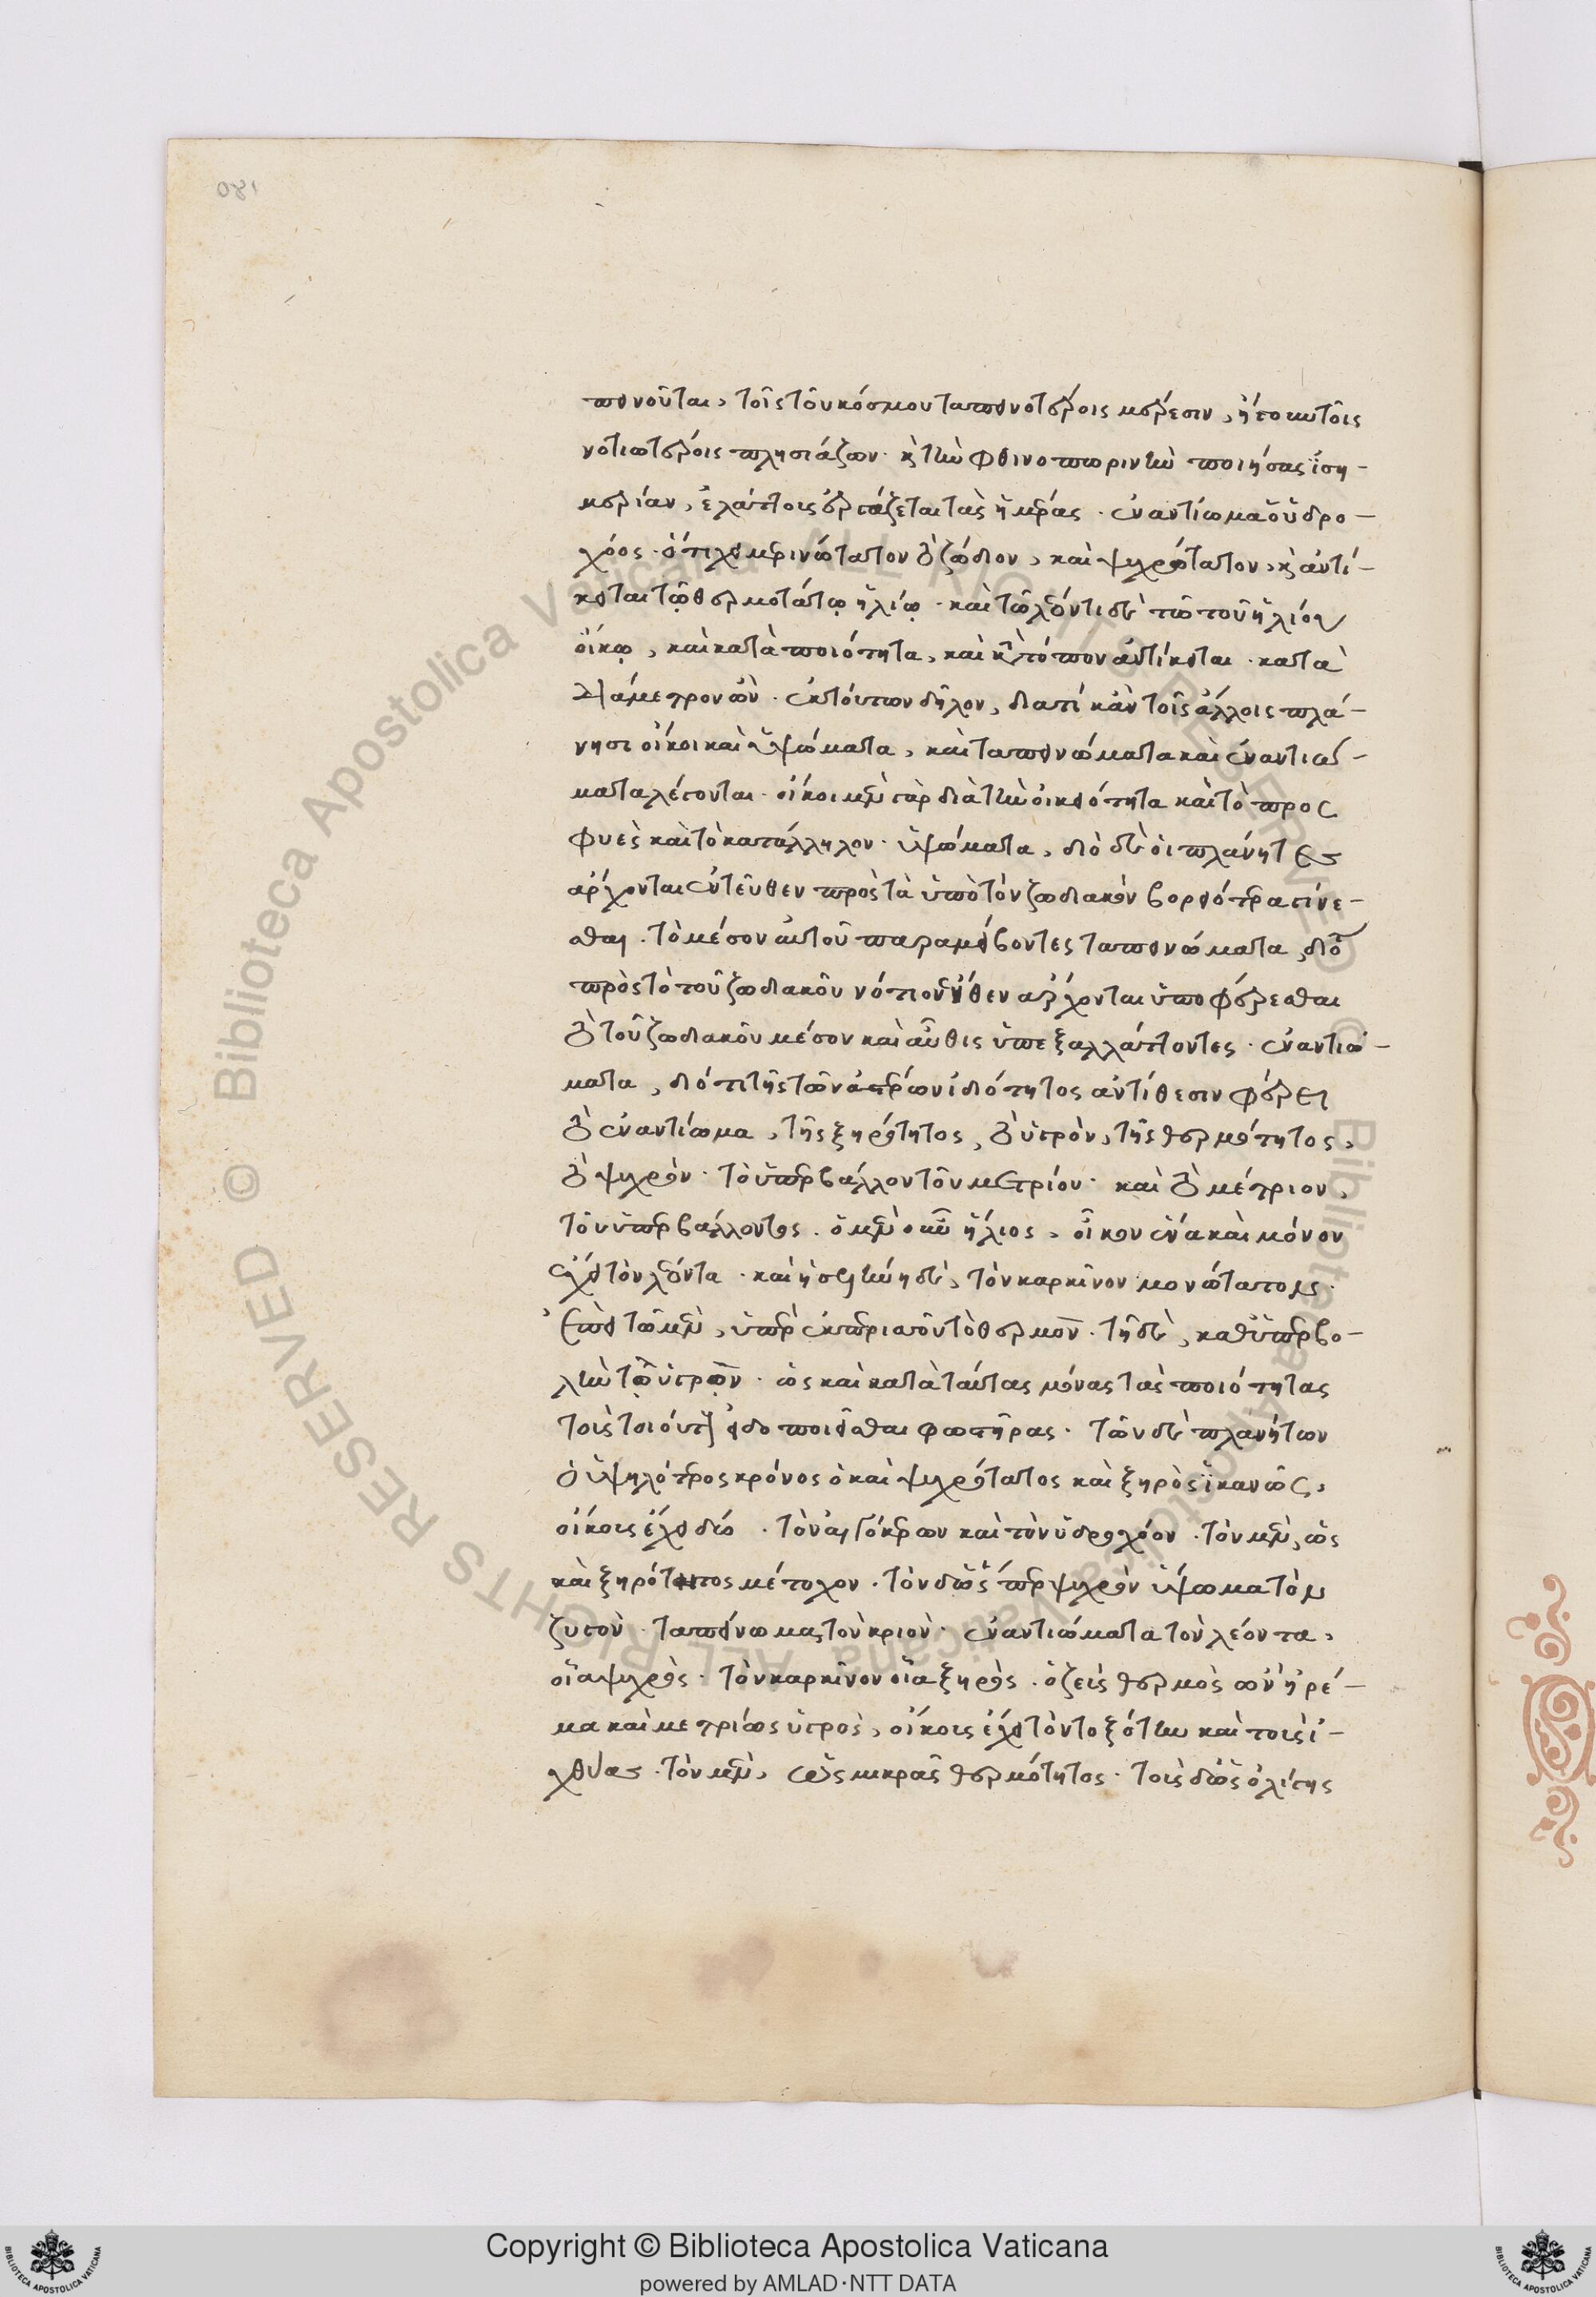 πεινοῦται, τοῖς τοῦ κόσμου ταπεινοτέροις μέρεσιν, ἤτοι τοῖς
νοτιωτέροις πλησιάζων· κ τὴν φθινοπωρινὴν ποιήσας ἰση-
μερίαν, ἐλάττους ἐργάζεται τὰς ἡμέρας· ἐναντίωμα ὁ ὑδρο-
χόος· ὅτι χειμερινώτατον τὸ ζώδιον, καὶ ψυχρότατον, κ ἀντί-
κειται τῷ θερμοτάτῳ ἡλίῳ· καὶ τῷ λέοντι δὲ τῷ τοῦ ἡλίου
οἴκῳ, καὶ κατὰ ποιότητα, καὶ κατὰ τόπον ἀντίκειται· κατὰ
διάμετρον ὤν· ἐκ τούτων δῆλον, διατί κἀν τοῖς ἄλλοις πλά-
νησι οἶκοι καὶ ὑψώματα, καὶ ταπεινώματα καὶ ἐναντιώ-
ματα λέγονται· οἶκοι μὲν γὰρ διὰ τὴν οἰκειότητα καὶ τὸ προς
φυὲς καὶ τὸ κατάλληλον· ὑψώματα, διὸ δὲ οἱ πλάνητες
ἄρχονται ἐντεῦθεν πρὸς τὰ ὑπὸ τὸν ζωδιακὸν βορειότερα γίνε-
σθαι· τὸ μέσον αὐτοῦ παραμείβοντες ταπεινώματα, διό
πρὸς τὸ τοῦ ζωδιακοῦ νότιον ἔνθεν ἄρχονται ὑποφέρεσθαι
τὸ τοῦ ζωδιακοῦ μέσον καὶ αὖθις ὑπεξαλλάττοντες· ἐναντιώ-
ματα, διότι τῆς τῶν ἀστέρων ἰδιότητος ἀντίθεσιν φέρει
τὸ ἐναντίωμα, τῆς ξηρότητος, τὸ ὑγρὸν, τῆς θερμότητος,
τὸ ψυχρόν· τὸ ὑπερβάλλον τοῦ μετρίου· καὶ τὸ μέτριον,
τοῦ ὑπερβάλλοντος· ὁ μὲν οὖν ἥλιος, οἶκον ἕνα καὶ μόνον
ἔχει τὸν λέοντα· καὶ ἡ σελήνη δὲ, τὸν καρκῖνον μονώτατον·
ἐπεὶ τῷ μὲν, ὑπερεκπερισσοῦν τὸ θερμον· τῇ δὲ, καθ ὑπερβο-
λὴν τὸ ὑγρὸν· ὡς καὶ κατὰ ταύτας μόνας τὰς ποιότητας
τοὺς τοιούτους εἰδοποιεῖσθαι φωστῆρας· τῶν δὲ πλανήτων
ὁ ὑψηλότερος κρόνος ὁ καὶ ψυχρότατος καὶ ξηρὸς ἱκανῶς,
οἴκους ἔχει δύο· τὸν αἰγόκερων καὶ τὸν ὑδροχόον· τὸν μὲν, ὡς
καὶ ξηρότητος μέτοχον· τὸν δ ὡς ὑπέρψυχρὸν ὕψωμα τὸν
ζυγὸν· ταπείνωμα, τὸν κριὸν· ἐναντιώματα τὸν λέοντα,
οἷα ψυχρὸς· τὸν καρκῖνον οἷα ξηρὸς· ὁ ζεὺς θερμὸς ὢν ἠρέ-
μα καὶ μετρίως ὑγρὸς, οἴκους ἔχει τὸν τοξότην καὶ τοὺς ἰ-
χθύας· τὸν μὲν, ὡς μικρᾶς θερμότητος· τοὺς δ ὡς ὀλίγης